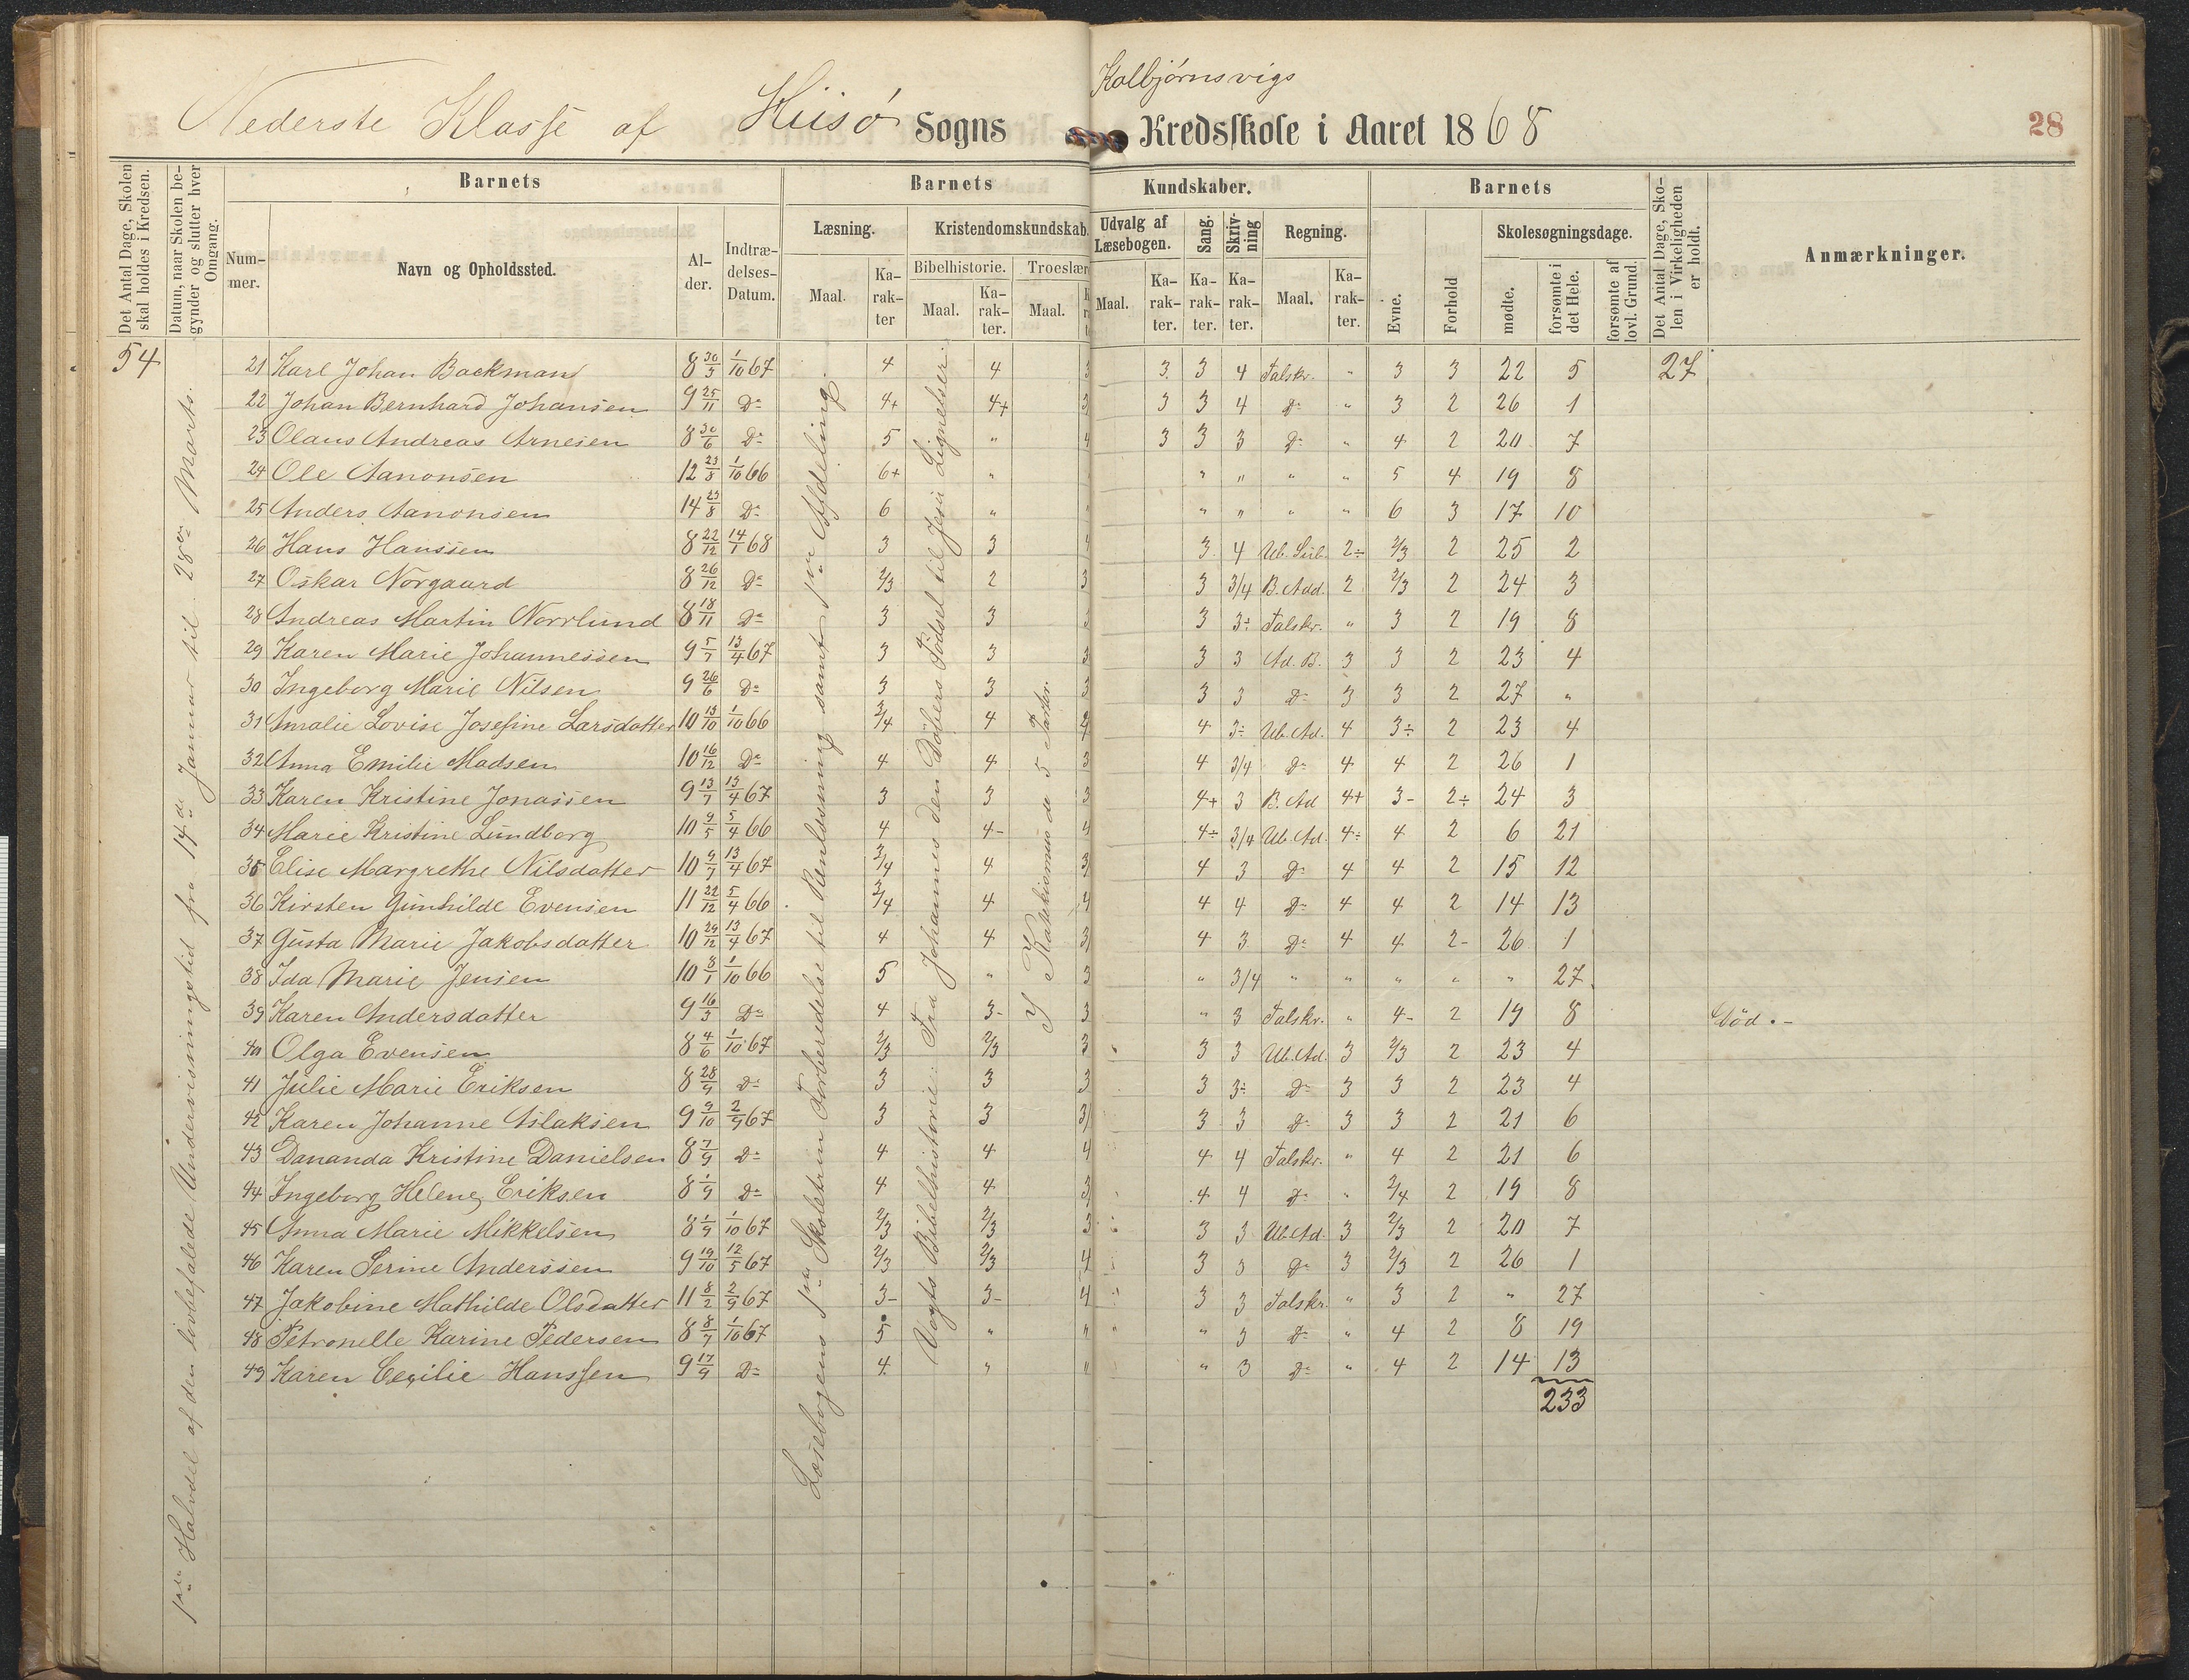 Kolbjørnsvigs
Nederste Klasse af Hiisø Sogns Kredsskole i Aaret 1868
28
Det Antal Dage, Skolen skal holdes i Kredsen.
Datum, naar Skolen begynder og slutter hver Omgang.
Barnets
Barnets
Kundskaber.
Barnets
Det Antal Dage, Skolen i Virkeligheden er holdt.
Anmærkninger.
Nummer.
Navn og Opholdssted.
Alder.
Indtrædelses-Datum.
Læsning.
Kristendomskundskab.
Udvalg af Læsebogen.
Sang.
Skrivning
Regning.
Evne.
Forhold
Skolesøgningsdage.
Bibelhistorie.
Troeslær
Maal.
Karakter
Maal.
Karakter.
Maal.
Maal.
Karakter.
Karakter.
Karakter.
Maal.
Karakter.
mødte.
forsømte i det Hele.
forsømte af lovl. Grund.
54
1ste Halvdel af den lovbefalede Undervisningstid fra 14de Januar til 28de Marts.
Læsebogens 1ste Skoletrin Forberedelse til Renlæsning samt 1ste Afdeling.
Vogts Bibelhistorie: Fra Johannes den Døbers Fødsel til Jesu Lignelser.
I Katekismus de 5 Parter.
21 Karl Johan Backman 8 30/5 1/10 67 4 4 3 3 3 4 Talskr. " 3 3 22 5 27
22 Johan Bernhard Johansen 9 25/11 Do 4+ 4+ 3 3 3 4 Do " 3 2 26 1
23 Olaus Andreas Arnesen 8 30/6 Do 5 " 4 3 3 3 Do " 4 2 20 7
24 Ole Aanonsen 12 23/8 1/10 66 6+ " " " " " 5 4 19 8
25 Anders Aanonsen 14 23/8 Do 6 " " " " " " 6 3 17 10
26 Hans Hanssen 8 22/12 14/1 68 3 3 4 3 4 Ub. Sub. 2÷ 2/3 2 25 2
27 Oskar Norgaard 8 26/12 Do 2/3 2 3 3 3/4 B. Add. 2 2/3 2 24 3
28 Andreas Martin Norrlund 8 18/11 Do 3 3 3 3 3÷ Talskr. " 3 2 19 8
29 Karen Marie Johannessen 9 5/7 13/4 67 3 3 3 3 3 Ad. B. 3 3 2 23 4
30 Ingeborg Marie Nilsen 9 26/6 Do 3 3 3 3 3 Do 3 3 2 27 "
31 Amalie Lovise Josefine Larsdatter 10 13/10 1/10 66 3/4 4 4 4 3÷ Ub. Ad. 4 3÷ 2 23 4
32 Anna Emilie Madsen 10 16/12 Do 4 4 3 4 3/4 Do 4 4 2 26 1
33 Karen Kristine Jonassen 9 13/7 13/4 67 3 3 3 4+ 3 B. Ad 4+ 3- 2÷ 24 3
34 Marie Kristine Lundborg 10 9/5 5/4 66 4 4- 4 4÷ 3/4 Ub. Ad. 4÷ 4 2 6 21
35 Elise Margrethe Nilsdatter 10 9/7 13/4 67 3/4 4 3 4 3 Do 4 4 2 15 12
36 Kirsten Gunhilde Evensen 11 22/12 5/4 66 3/4 4 4 4 4 Do 4 4 2 14 13
37 Gusta Marie Jakobsdatter 10 29/12 13/4 67 4 4 3 4 3 Do 4 4 2- 26 1
38 Ida Marie Jensen 10 8/1 1/10 66 5 " 3 " 3/4 " " " " " 27
39 Karen Andersdatter 9 16/3 Do 4 3- 3 " 3 Talskr. " 4- 2 19 8 Död.-
40 Olga Evensen 8 4/6 1/10 67 2/3 2/3 3 3 3 Ub. Ad. 3 2/3 2 23 4
41 Julie Marie Eriksen 8 28/9 Do 3 3 3 3 3÷ Do 3 3 2 23 4
42 Karen Johanne Aslaksen 9 9/10 2/9 67 3 3 3 3 3 Do 3 3 2 21 6
43 Dananda Kristine Danielsen 8 7/9 Do 4 4 4 4 4 Talskr. " 4 2 21 6
44 Ingeborg Helene Eriksen 8 1/9 Do 4 4 3 4 4 Do " 3/4 2 19 8
45 Anna Marie Mikkelsen 8 1/9 1/10 67 2/3 2/3 3 3 3 Ub. Ad. 3 2/3 2 20 7
46 Karen Serine Anderssen 9 19/10 12/5 67 2/3 2/3 4 3 3 Do 3 2/3 2 26 1
47 Jakobine Mathilde Olsdatter 11 8/2 2/9 67 3- 3- 4 3 3 Talskr. " 3 2 " 27
48 Petronelle Karine Pedersen 8 8/7 1/10 67 5 " " " " 3 Do " 4 2 8 19
49 Karen Cecilie Hanssen 9 17/9 Do 4 " " " 3 Do " 4 2 14 13
233